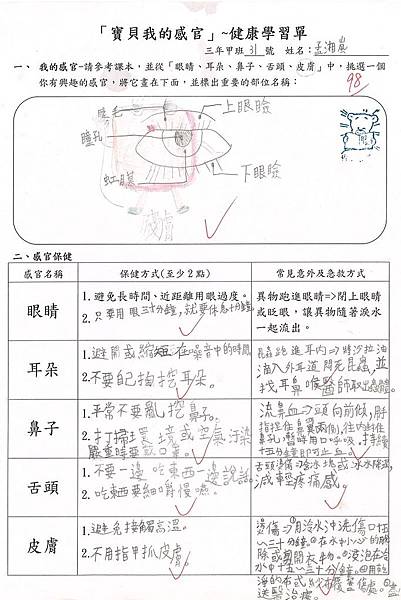 「寶貝我的感官」~健康學習單
三年甲班31號 姓名:孟湘嵐
一、 我的感官-請參考課本,並從「眼睛、耳朵、鼻子、舌頭、皮膚」中,挑選一個
你有興趣的感官,將它畫在下面,並標出重要的部位名稱:
98
睫毛
上眼瞼
瞳孔
虹膜
下眼瞼
皮膚
二、感官保健
感官名稱
保健方式(至少2點)
常見意外及急救方式
眼睛
1.避免長時間、近距離用眼過度。
2.只要用眼三十分鐘,就要休息十分鐘。
異物跑進眼睛=>閉上眼睛
或眨眼,讓異物隨著淚水
一起流出。
耳朵
1.避開或縮短在噪音中的時間
2.不要自掏挖耳朵。
昆蟲跑進耳內=>將沙拉油
滴入外耳道悶死昆蟲,並
找耳鼻喉醫師取出蟲體
鼻子
1.平常不要亂挖鼻子。
2.打掃環境或空氣汙染
嚴重時要戴口罩。
流鼻血=>頭向前傾,用手
指捏住鼻翼兩側,往內封住
鼻孔,暫時用口呼吸,持續
十五分鐘即可止血。
舌頭
1.不要一邊吃東西一邊說話
2.吃東西要細嚼慢嚥。
舌頭燙傷=>含冰塊或冰水降溫,
減輕疼痛感。
皮膚
1.避免接觸高溫。
2.不用指甲抓皮膚。
燙傷=>①用冷水沖洗傷口十五
~三十分鐘。②在水中小心的脫
除或剪開衣物。③浸泡在冷
水中十五~三十分鐘。④用乾
淨的布或紗布覆蓋傷處。
送醫治療。